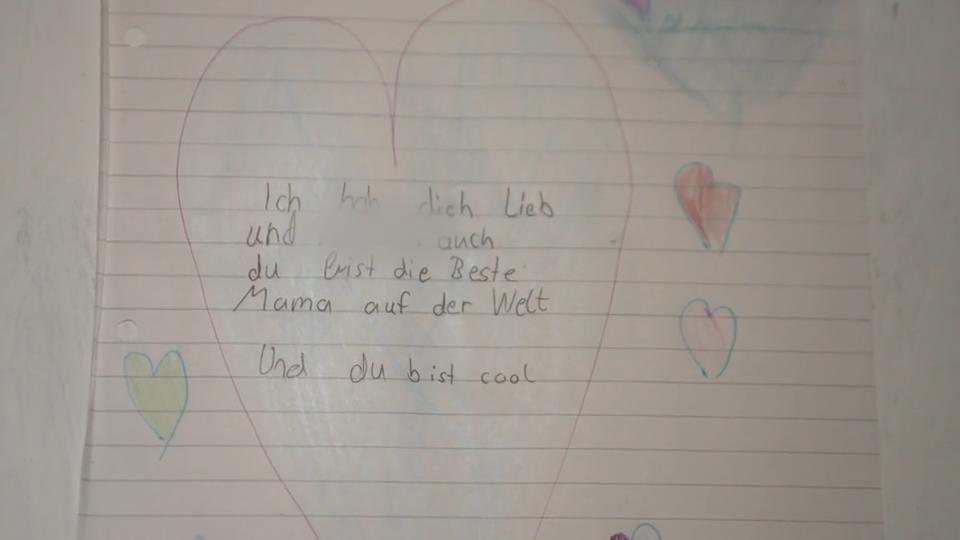 Ich hab dich Lieb
und auch
du bist die Beste
Mama auf der Welt
Und du bist cool